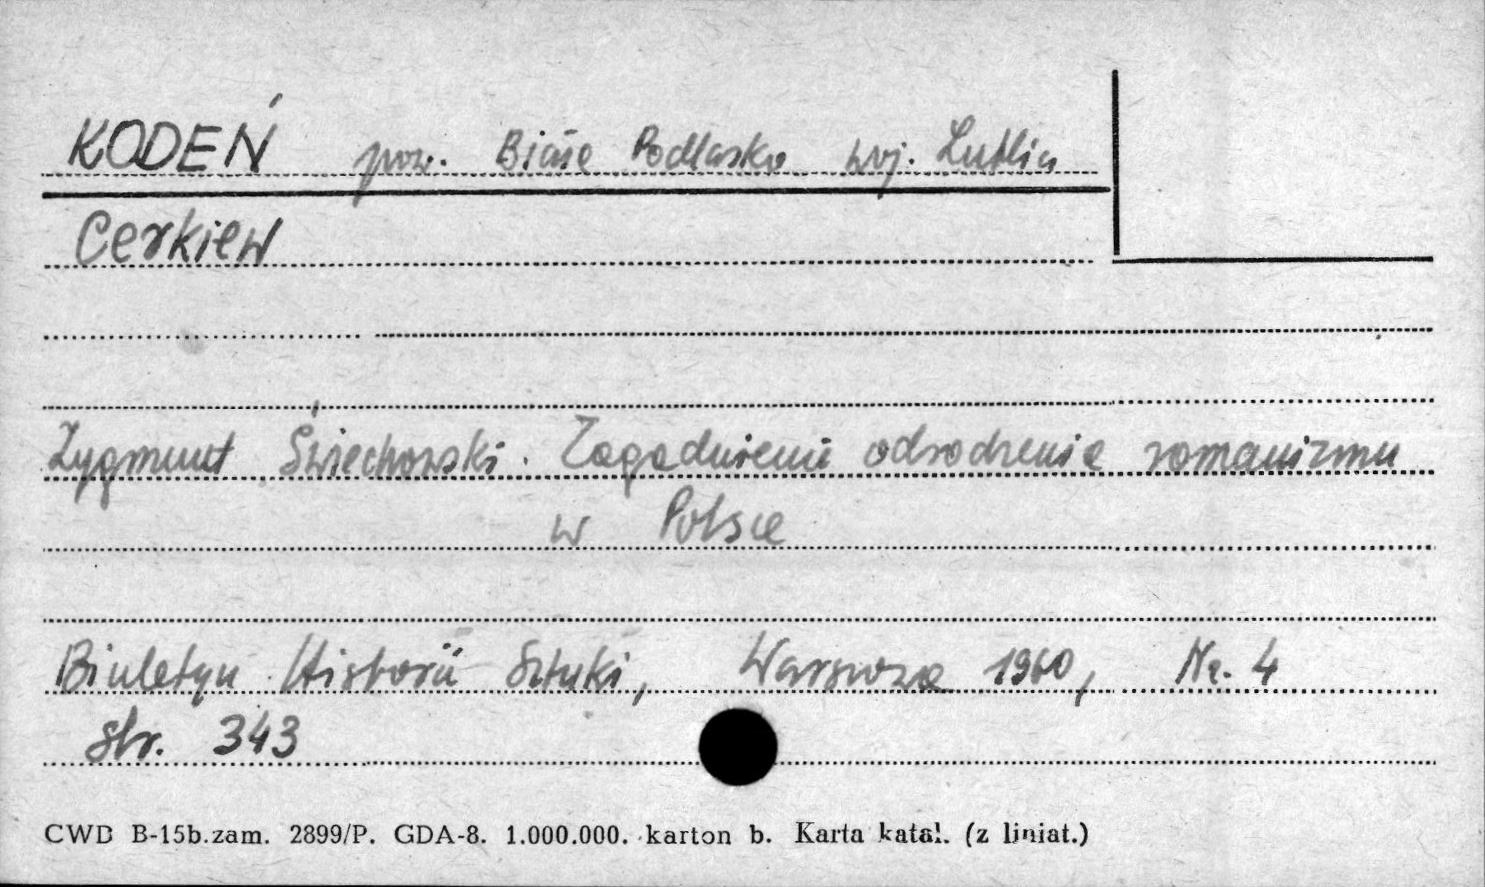 KODEŃ pow. Biała Podlaska woj. Lublin
Cerkiew
Zygmunt Świechowski. Zagadnienie odrodzenia romanizmu
w Polsce
Biuletyn Historii Sztuki, Warszawa 1960, Nr. 4
str. 343
CWD B-15b.zam. 2899/P. GDA-8. 1.000.000. karton b. Karta katal. (z liniat.)